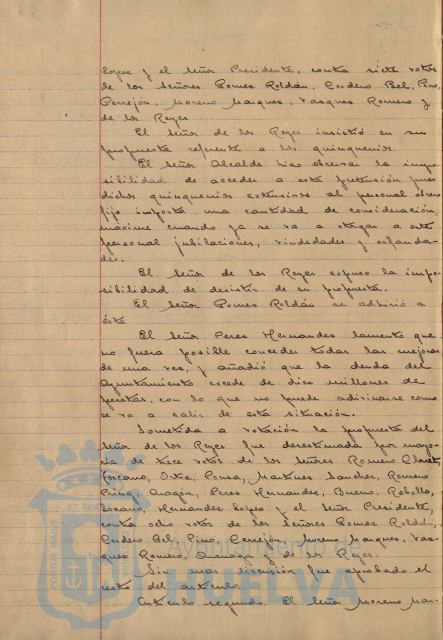 Lopez y el Señor Presidente, contra siete votos
de los Señores Gomez Roldán, Cordero Bel, Pino,
Cerrejón, Moreno Marquez, Vasquez Romero y
de los Reyes.
El Señor de los Reyes insistió en su
propuesta referente a los quinquenios.
El Señor Alcalde hizo observar la impo-
sibilidad de acceder a esta pretensión pues
dichos quinquenios extensivos al personal obrero
fijo importa una cantidad de consideración,
máxime cuando ya se va a otorgar a este
personal jubilaciones, viudedades y orfanda-
des.
El Señor de los Reyes expuso la impo-
sibilidad de desistir de su propuesta.
El Señor Gomez Roldán se adhirió a
ésta
El Señor Perez Hernandez lamentó que
no fuera posible conceder todas las mejoras
de una vez, y añadió que la deuda del
Ayuntamiento excede de diez millones de
pesetas, con lo que no puede adivinarse como
se va a salir de esta situación.
Sometida a votación la propuesta del
Señor de los Reyes fue desestimada por mayo-
ria de trece votos de los Señores Romero Claret,
Toscano, Ortiz, Ponsa, Martinez Sanchez, Romero
Aragón, Perez Hernandez, Bueno, Rebollo,
Lozano, Hernandez Lopez y el Señor Presidente,
contra ocho votos de los Señores Gomez Roldán,
Cordero Bel, Pino, Cerrejón, Moreno Marquez, Vas-
quez Romero, y de los Reyes.
Sin mas discusión fue aprobado el
resto del articulo.
Articulo segundo. El Señor Moreno Mar-
Ayuntamiento de
HUELVA